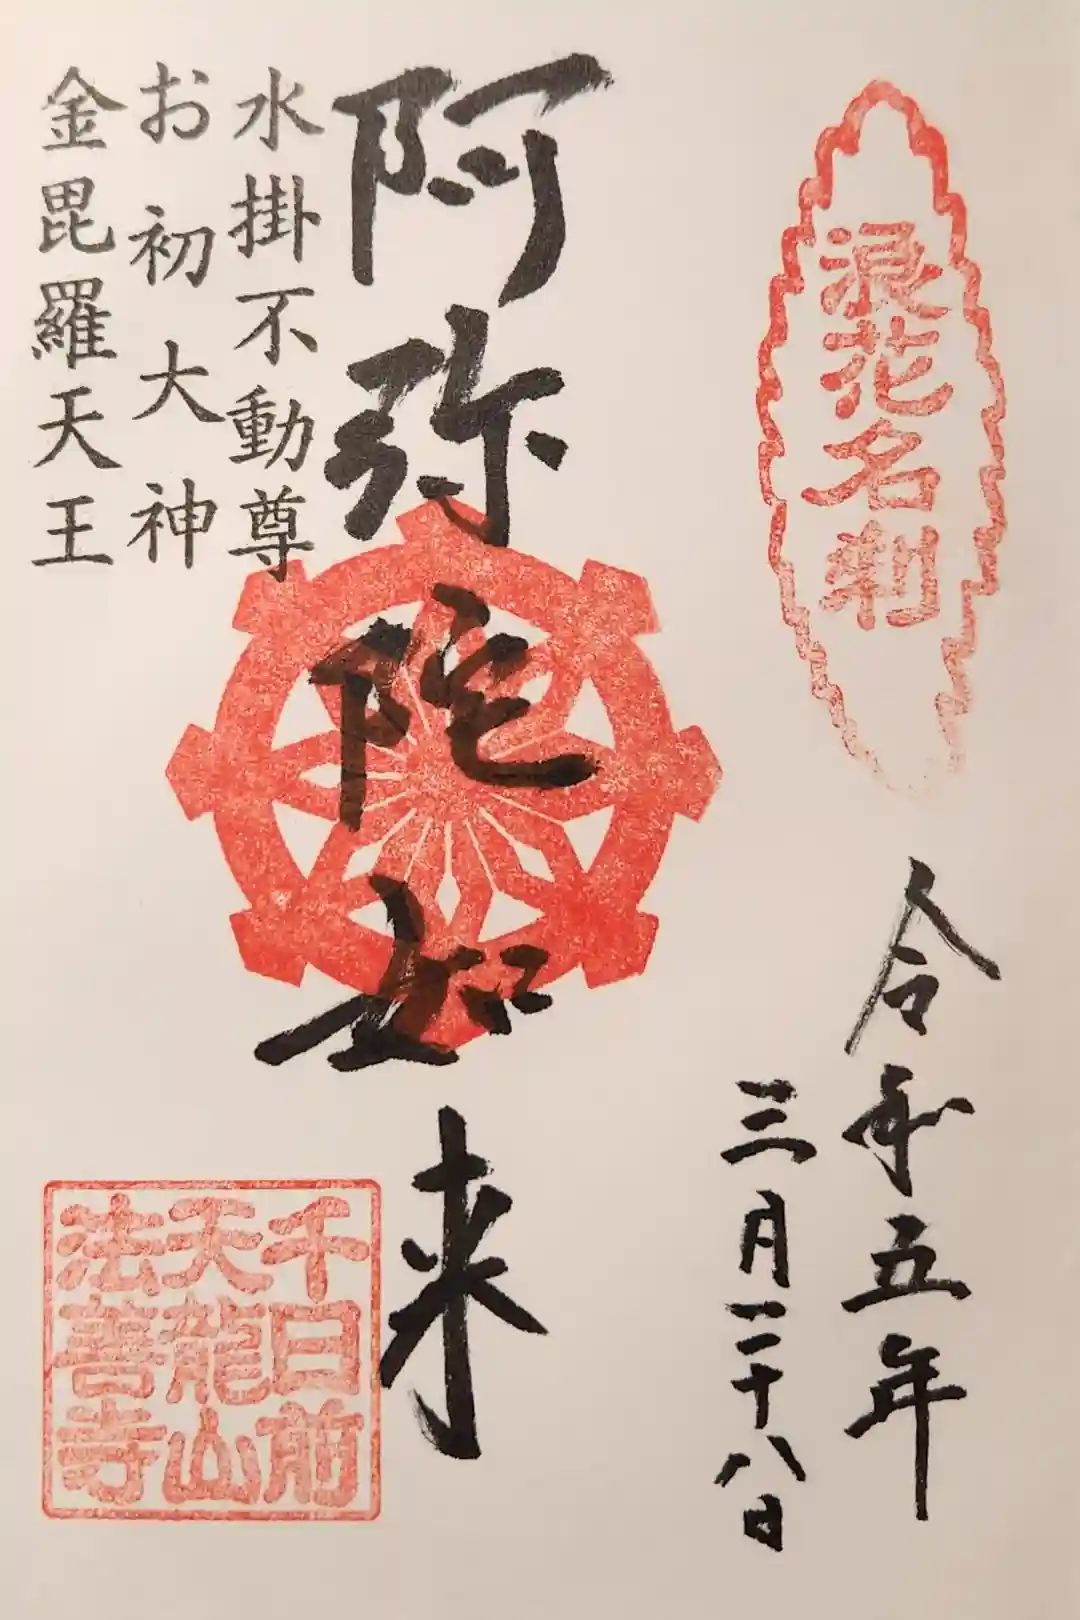 浪花名刹
令和五年
三月二十八日
阿弥陀如来
水掛不動尊
お初大神
金毘羅天王
千日前
天龍山
法善寺